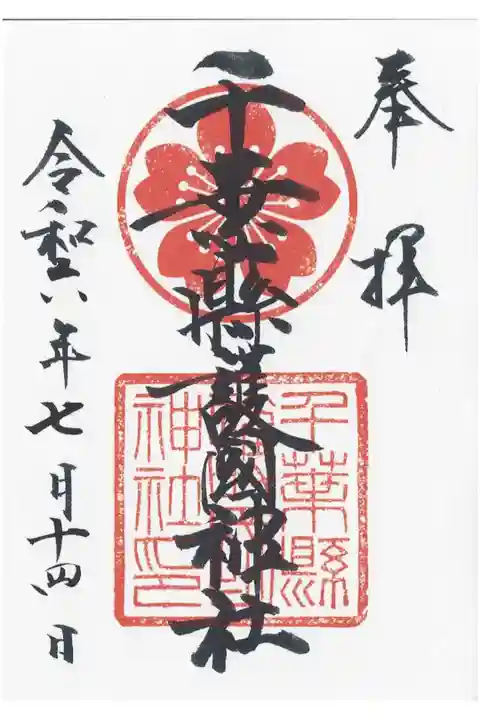 奉拝
千葉縣護國神社
令和六年七月十四日
千葉縣
神社印